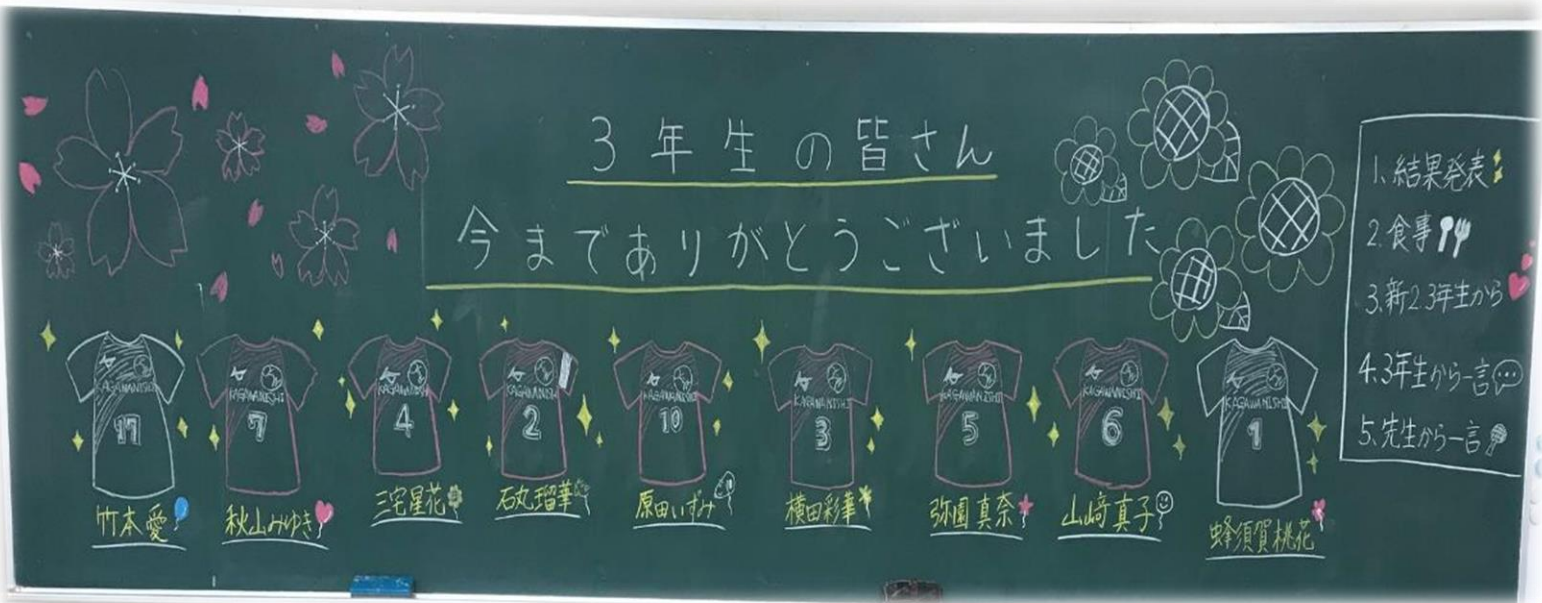 3年生の皆さん
今までありがとうございました
1、結果発表
2、食事
3、新2.3年生から
4、3年生から一言
5、先生から一言
KAGAWANISHI
17
竹本愛
KAGAWANISHI
7
秋山みゆき
KAGAWANISHI
4
三宅星花
KAGAWANISHI
2
石丸瑠華
KAGAWANISHI
10
原田いずみ
KAGAWANISHI
3
横田彩華
KAGAWANISHI
5
弥園真奈
KAGAWANISHI
6
山﨑真子
KAGAWANISHI
1
蜂須賀桃花